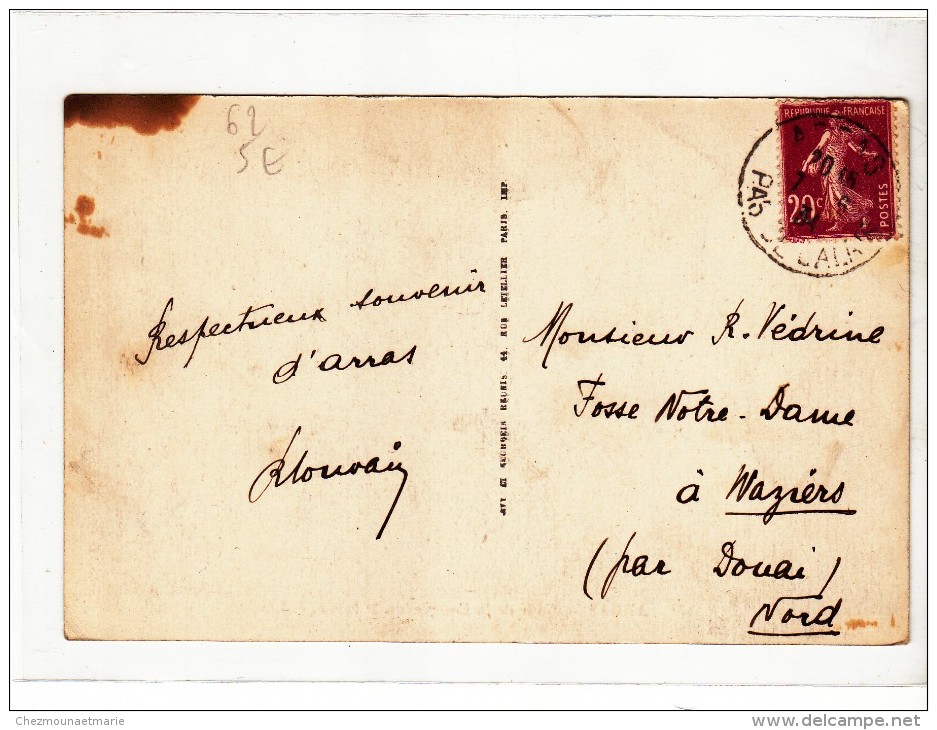 62
5E
RÉPUBLIQUE FRANÇAISE
20c
POSTES
ARRAS
20
7
PAS DE CALAIS
Respectueux souvenir
d'arras
LEVY ET NEURDEIN REUNIS. 44, RUE LETELLIER PARIS. IMP.
Monsieur R. Védrine
Fosse Notre-Dame
à Waziérs
(par Douai)
Nord
Chezmounaetmarie
www.delcampe.net